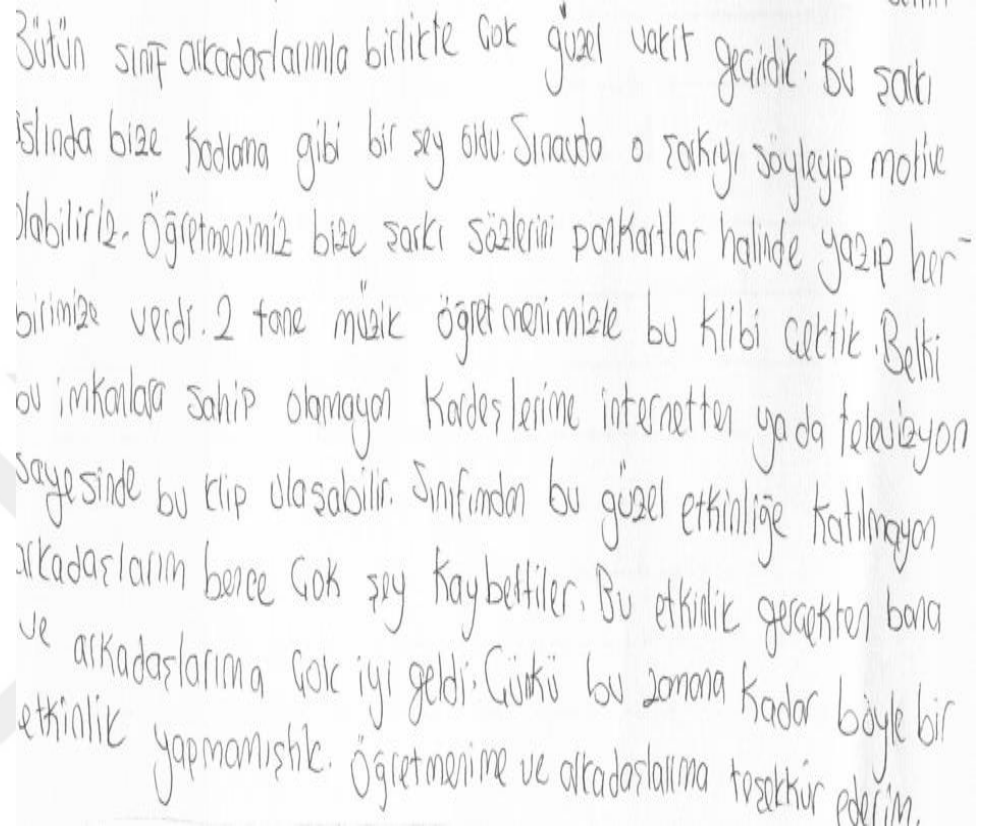 Bütün sınıf arkadaşlarımla birlikte çok güzel vakit geçirdik. Bu şarkı
aslında bize kodlama gibi bir şey oldu. Sınavda o şarkıyı söyleyip motive
olabiliriz. Öğretmenimiz bize şarkı sözlerini pankartlar halinde yazıp her-
birimize verdi. 2 tane müzik öğretmenimizle bu klibi çektik. Belki
bu imkanlara sahip olamayan kardeşlerime internetten ya da televizyon
sayesinde bu klip ulaşabilir. Sınıfımdan bu güzel etkinliğe katılmayan
arkadaşlarım bence çok şey kaybettiler. Bu etkinlik gerçekten bana
ve arkadaşlarıma çok iyi geldi. Çünkü bu zamana kadar böyle bir
etkinlik yapmamıştık. Öğretmenime ve arkadaşlarıma teşekkür ederim.